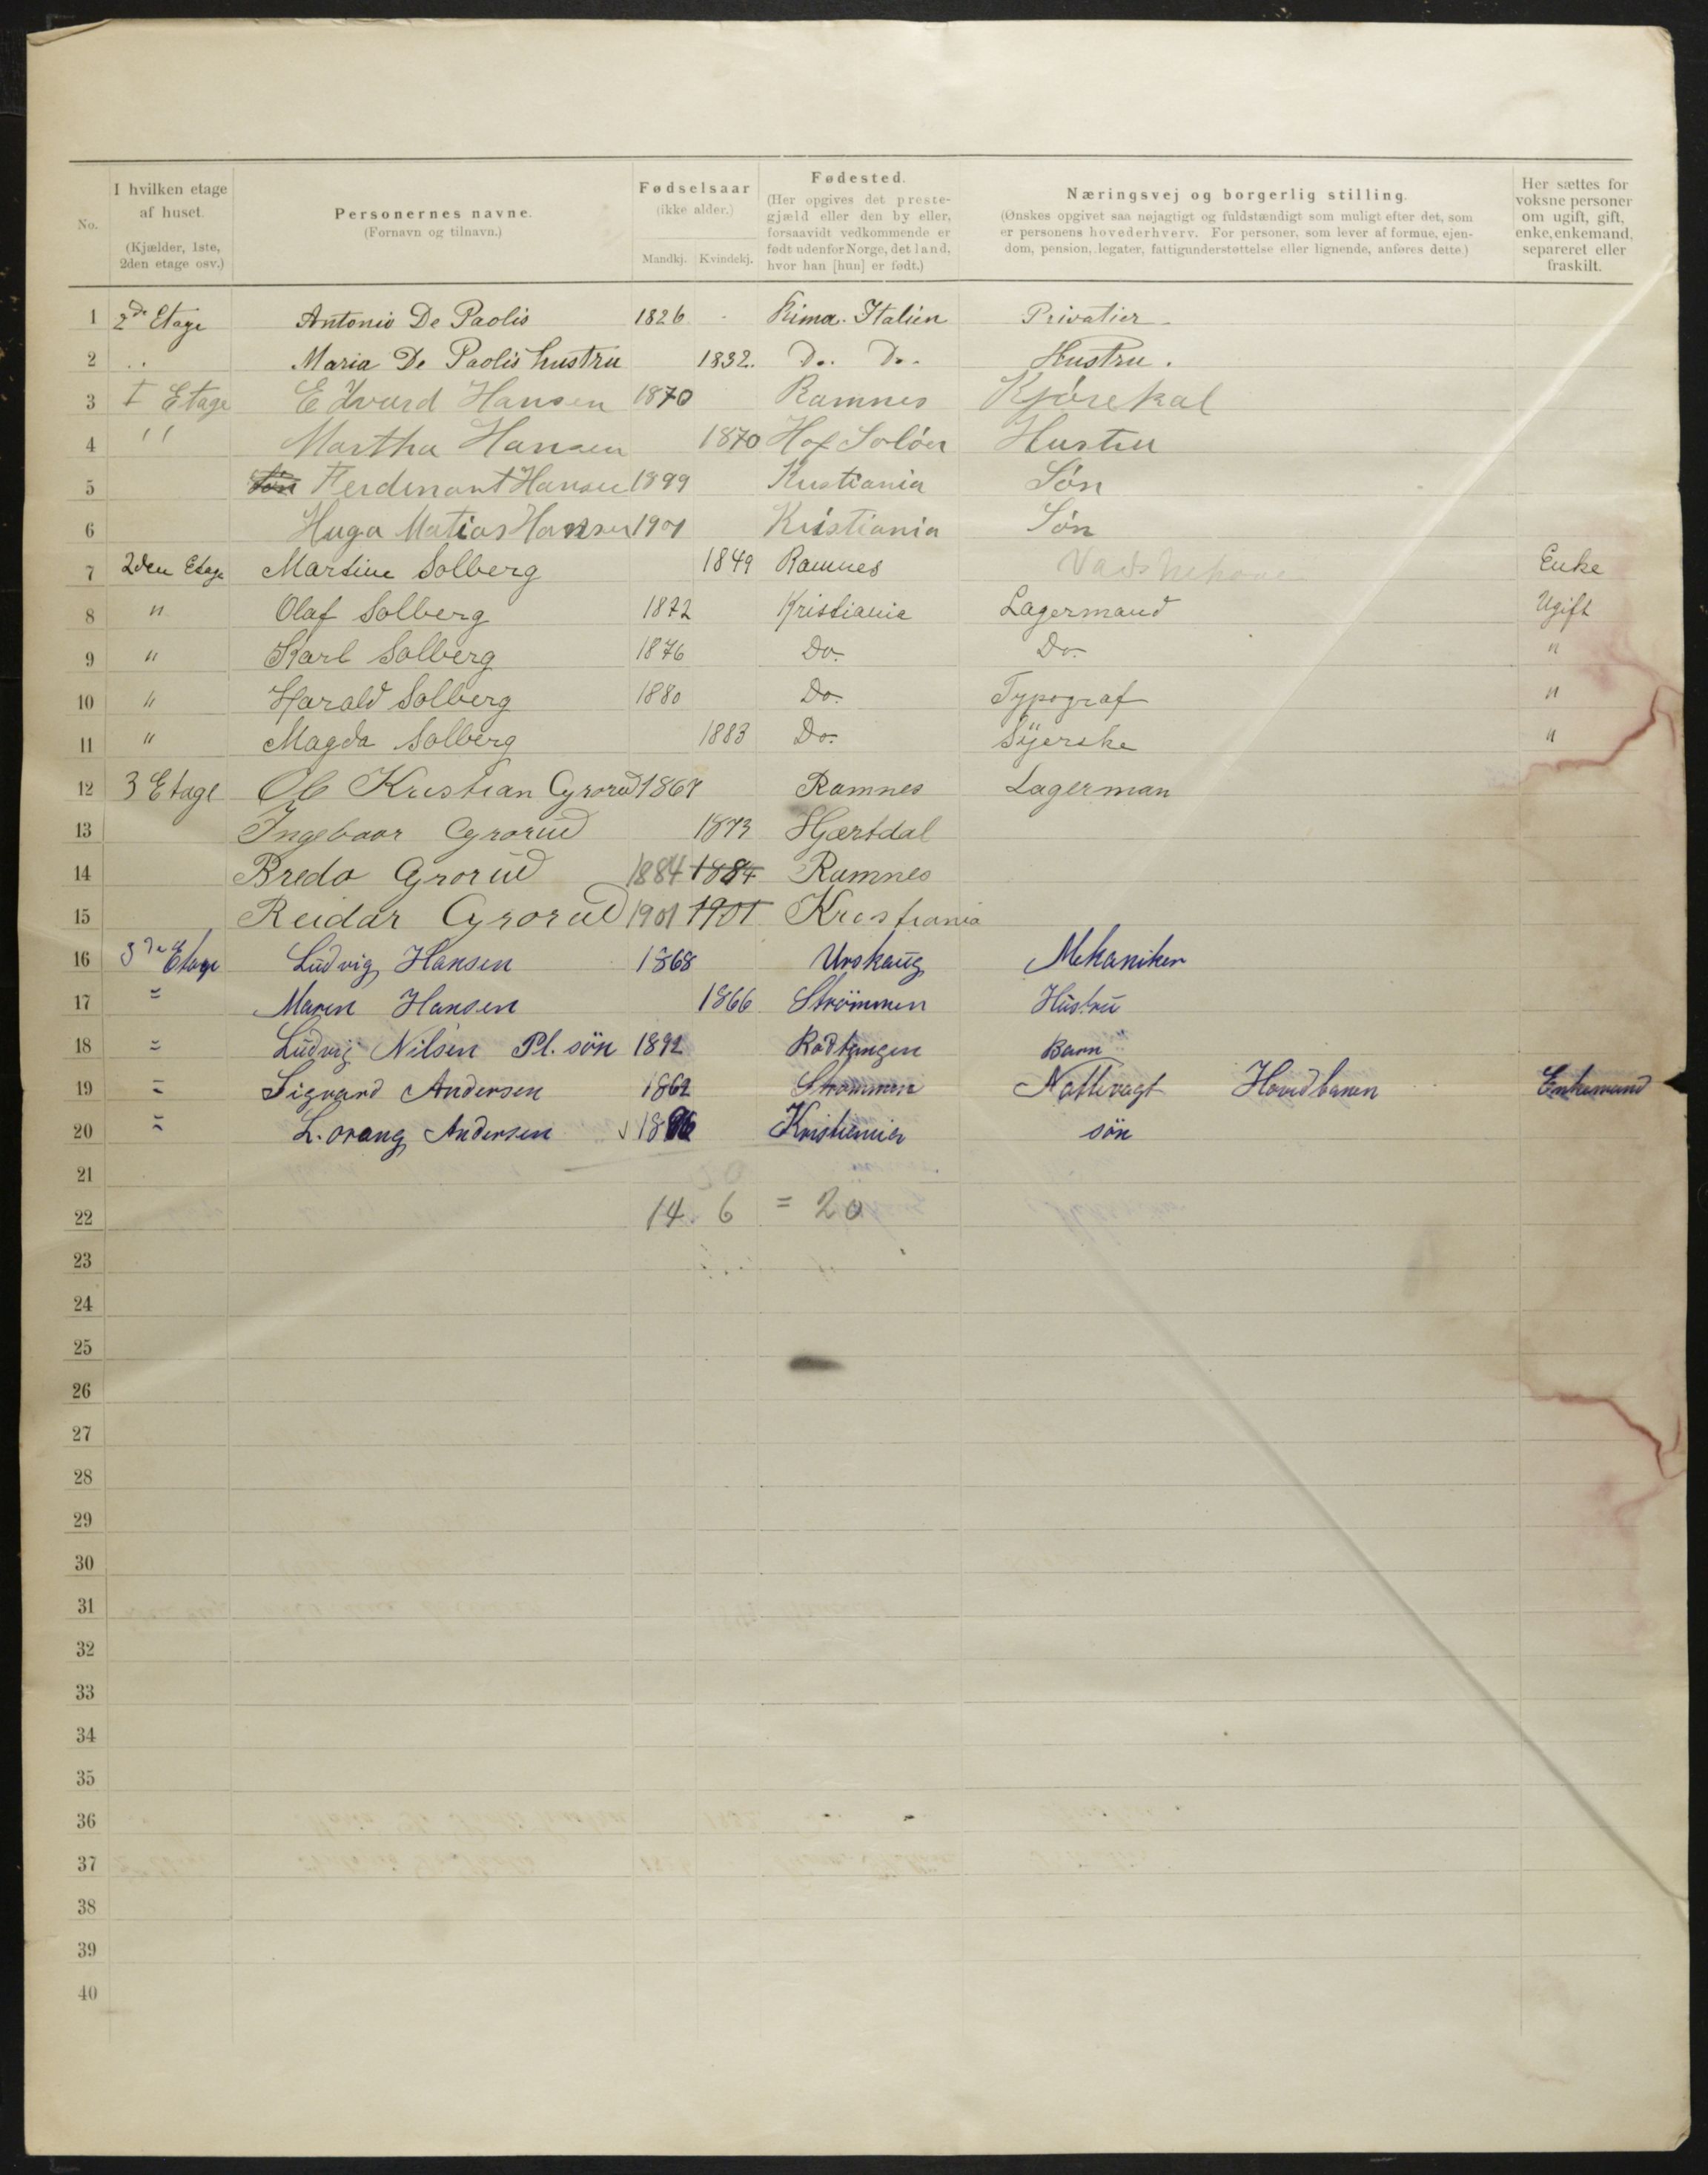 No.	I hvilken etage af huset. (Kjælder, 1ste, 2den etage osv.)	Personernes navne. (Fornavn og tilnavn.)	Fødselsaar (ikke alder.) Mandkj. Kvindekj.	Fødested. (Her opgives det prestegjæld eller den by eller, forsaavidt vedkommende er født udenfor Norge, det land, hvor han [hun] er født.)	Næringsvej og borgerlig stilling. (Ønskes opgivet saa nøjagtigt og fuldstændigt som muligt efter det, som er personens hovederhverv. For personer, som lever af formue, ejendom, pension, legater, fattigunderstøttelse eller lignende, anføres dette.)	Her sættes for voksne personer om ugift, gift, enke, enkemand, separeret eller fraskilt.
1 2de Etage Antonio De Paolis 1826 Rima. Italien Privatier.
2 " Maria De Paolis hustru 1832. Do. Do. Hustru.
3 I Etage Edvard Hansen 1870 Ramnes Kjörekal
4 " Martha Hansen 1870 Hof Solöer Hustru
5 Ferdinant Hansen 1899 Kristiania Sön
6 Huga Matias Hansen 1901 Kristiania Sön
7 2den Etage Martine Solberg 1849 Ramnes Enke
8 " Olaf Solberg 1872 Kristiania Lagermand Ugift
9 " Karl Solberg 1876 Do. Do. "
10 " Harald Solberg 1880 Do. Typograf "
11 " Magda Solberg 1883 Do. Syerske "
12 3 Etage Ole Kristian Grorud 1867 Ramnes Lagerman
13 Ingeboor Grorud 1873 Hjærtdal
14 Bredo Grorud 1884 1884 Ramnes
15 Reidar Grorud 1901 1901 Kristiania
16 3de Etage Ludvig Hansen 1868 Urskaug Mekaniker
17 " Maren Hansen 1866 Strömmen Hustru
18 " Ludvig Nilsen Pl. sön 1892 Rödtangen Barn
19 " Sigvard Andersen 1862 Strømmen Nattevagt Hovedbanen Enkemand
20 " L. orang Andersen 1896 Kristiania sön
21
22 14 6 = 20
23
24
25
26
27
28
29
30
31
32
33
34
35
36
37
38
39
40